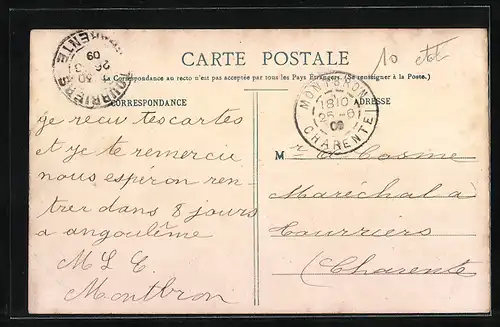 CARTE POSTALE
10
La Correspondance au recto n'est pas acceptée par tous les Pays Étrangers. (Se renseigner à la Poste.)
TOURRIERS
CHARENTE
26
09
CORRESPONDANCE
ADRESSE
MONTBRON
18 10
25 -8
09
CHARENTE
je recu tescartes
et je te remercie
nous espéron ren-
trer dans 8 jours
a angoulême
M L E
Montbron
M r Cosme
Maréchal a
Tourriers
(Charente